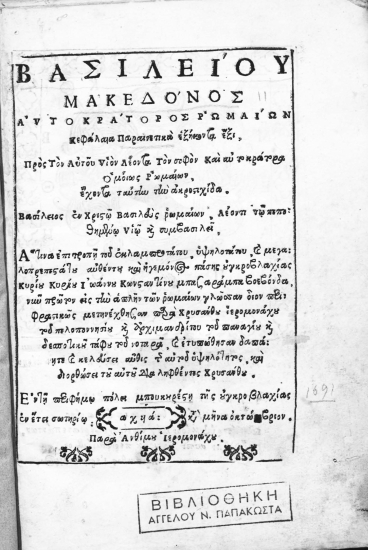 ΒΑΣΙΛΕΙΟΥ
ΜΑΚΕΔΟΝΟΣ
ΑΥΤΟΚΡΑΤΟΡΟΣ ΡΩΜΑΙΩΝ
Κεφάλαια Παραινετικὰ ἑξήκοντα ἕξι,
Πρὸς Τὸν Αὐτοῦ Υἱὸν Λέοντα Τὸν σοφὸν Καὶ αὐτοκράτορα
Ὁμοίως Ῥωμαίων,
ἔχοντα ταύτην τὴν ἀκροστιχίδα.
Βασίλειος ἐν Χριστῷ Βασιλεὺς ῥωμαίων, Λέοντι τῷ πεπο-
θημένῳ Υἱῷ ϗ συμβασιλεῖ.
ὑψηλοτάτου, ϗ μεγα-
λοπρεπεστάτου αὐθέντου καὶ ἡγεμόνος πάσης οὑγκροβλαχίας
Κυρίου Κυρίου ἰωάννου Κωνσταντίνου μπασαράμπα
νῦν πρῶτον εἰς τὴν ἁπλῆν τῶν ῥωμαίων γλῶσσαν
φραστικῶς μετηνέχθησαν παρὰ Χρυσάνθου ἱερομονάχου
τοῦ πελοποννησίου ϗ ἀρχιμανδρίτου τοῦ παναγίου ϗ
δεσποτικοῦ τάφου τοῦ νοταρᾶ, ϗ ἐτυπώθησαν δαπά-
νῃ τε ϗ κελεύσει αὖθις τῆς αὐτοῦ ὑψηλότητος, καὶ
διορθώσει τοῦ αὐτοῦ Δια ληφθέντος Χρυσάνθου.
Ἐν τῇ περιφήμῳ πόλει μπουκουρέστι τῆς οὑγκροβλαχίας
ἐν ἔτει σωτηρίῳ, αχϟα: κατὰ μῆνα ὀκτώβριον.
Παρὰ Ἀνθίμου ἱερομονάχου.
1691
ΒΙΒΛΙΟΘΗΚΗ
ΑΓΓΕΛΟΥ Ν. ΠΑΠΑΚΩΣΤΑ